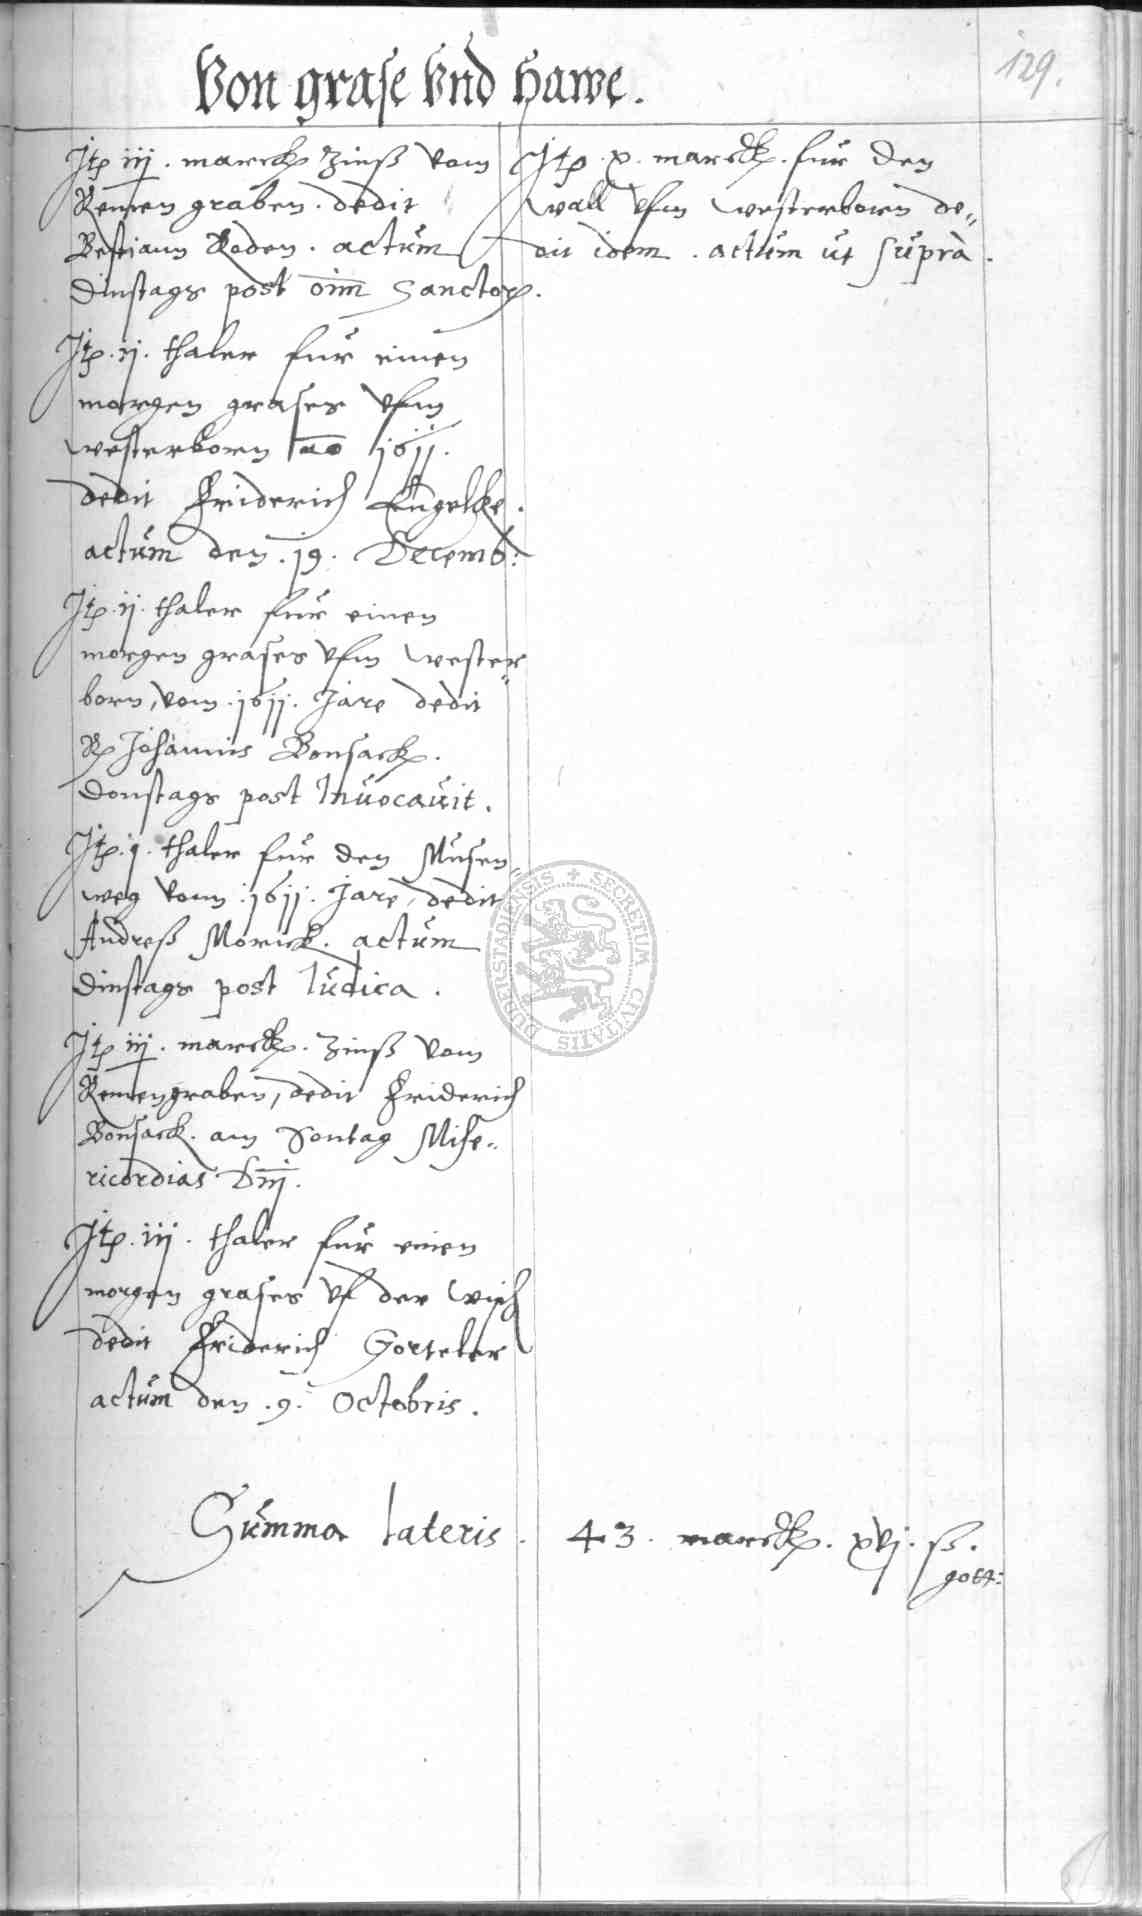 129.
Von grase vnd Hawe.
Jtē iij. marck Zinß vom
Remen graben. dedit
Bestiann Roden. actum
dinstags post oīm Sanctor.
Jtē. ij. thaler für einen
morgen grases vfm
westerborn ao 1611.
dedit Friderich Engelke.
actum den. 19. Decemb:
Jtē. ij. thaler für einen
morgen grases vfm wester„
born, vom. 1611. Jare dedit
R Johannis Bonsack.
donstags post Inuocauit.
Jtē. j. thaler für den Musen„
weg vom. 1611. Jare, dedit
Andreß Morick. actum
dinstags post Iudica.
Jtē iij. marck. Zinß vom
Remengraben, dedit Friderich
Bonsack. am Sontag Mise„
ricordias Dnj.
Jtē. iij. thaler für einen
morgen grases vf der wisch
dedit Friderich Gorteler
actum den. 9. Octobris.
Jtē. x. marck. für den
wall vfm westerborn de„
dit idem. actum ut suprà.
Summa lateris. 43. marck. xvj. ß.
gott:
DUDERSTADIENSIS + SECRETUM CIVITATIS